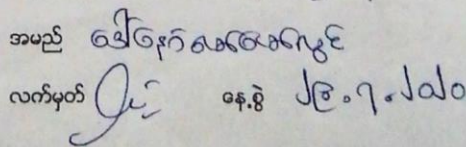 အမည် ဒေါ်နော်လေးလေးလွင်
လက်မှတ် နေ့စွဲ ၂၉.၇.၂၀၂၀